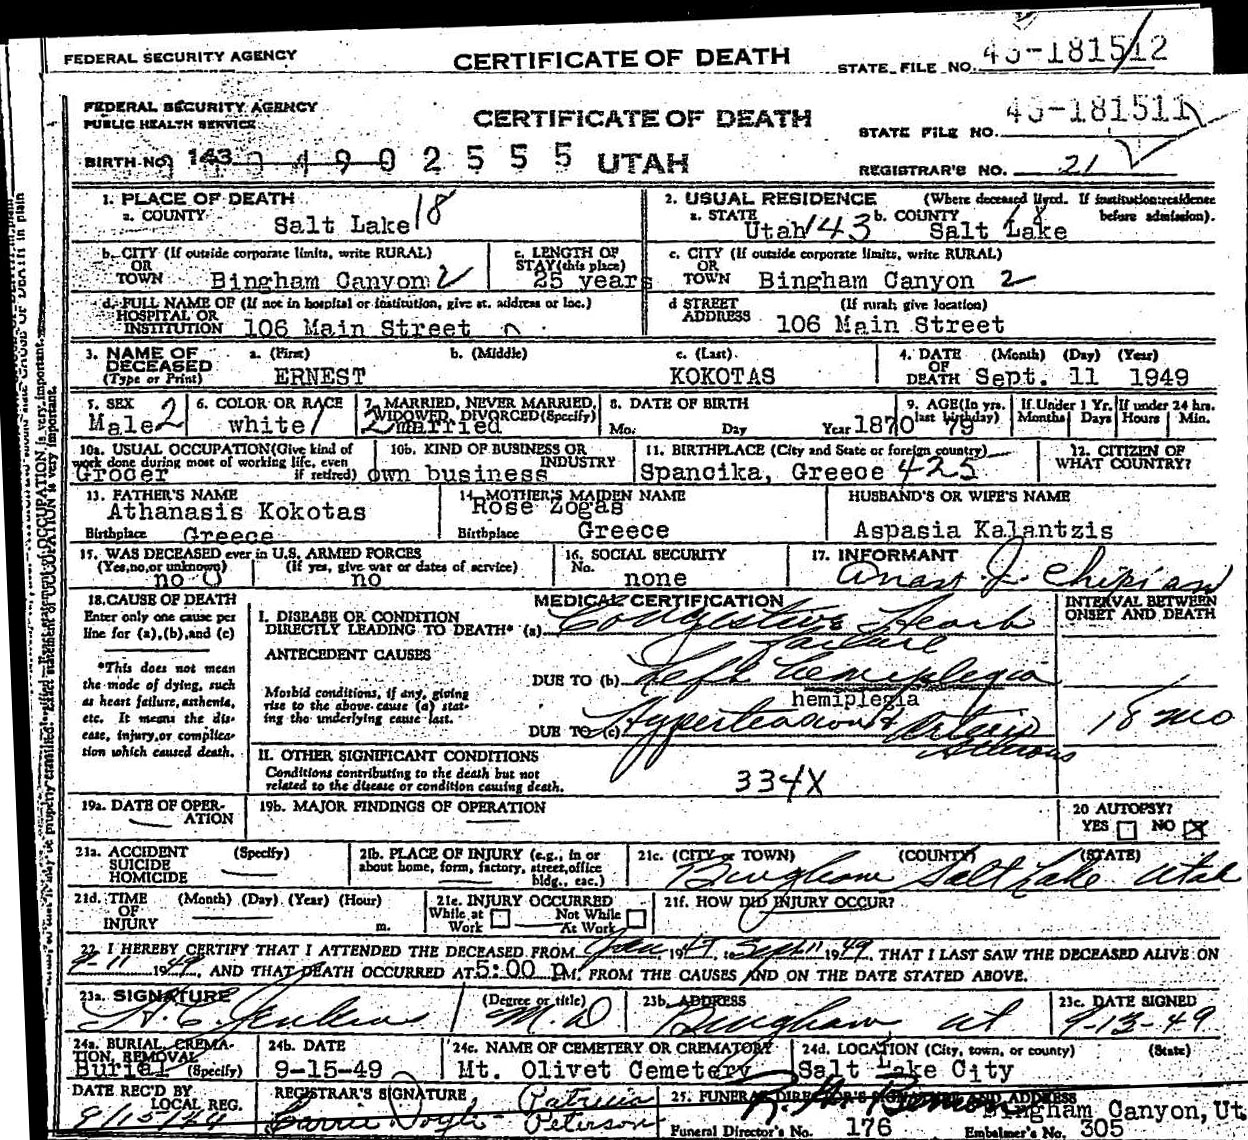 FEDERAL SECURITY AGENCY CERTIFICATE OF DEATH STATE FILE NO. 49-181512
FEDERAL SECURITY AGENCY
PUBLIC HEALTH SERVICE CERTIFICATE OF DEATH STATE FILE NO. 49-181511
BIRTH NO. 143 0 4 9 0 2 5 5 5 UTAH REGISTRAR'S NO. 21
1. PLACE OF DEATH 2. USUAL RESIDENCE (Where deceased lived. If institution: residence before admission).
a. COUNTY Salt Lake 18 a. STATE Utah 143 b. COUNTY Salt Lake 18
b. CITY (If outside corporate limits, write RURAL) OR TOWN Bingham Canyon 2 c. LENGTH OF STAY (this place) 25 years c. CITY (If outside corporate limits, write RURAL) OR TOWN Bingham Canyon 2
d. FULL NAME OF (If not in hospital or institution, give st. address or loc.) HOSPITAL OR INSTITUTION 106 Main Street d STREET ADDRESS (If rural, give location) 106 Main Street
3. NAME OF DECEASED (Type or Print) a. (First) ERNEST b. (Middle) c. (Last) KOKOTAS 4. DATE OF DEATH (Month) (Day) (Year) Sept. 11 1949
5. SEX Male 2 6. COLOR OR RACE white 1 7. MARRIED, NEVER MARRIED, WIDOWED, DIVORCED (Specify) 2 married 8. DATE OF BIRTH Mo. Day Year 1870 9. AGE (In yrs. last birthday) 79 If Under 1 Yr. Months Days If under 24 hrs. Hours Min.
10a. USUAL OCCUPATION (Give kind of work done during most of working life, even if retired) Grocer 10b. KIND OF BUSINESS OR INDUSTRY own business 11. BIRTHPLACE (City and State or foreign country) Spancika, Greece 425 12. CITIZEN OF WHAT COUNTRY?
13. FATHER'S NAME Athanasis Kokotas 14. MOTHER'S MAIDEN NAME Rose Zogas HUSBAND'S OR WIFE'S NAME
Birthplace Greece Birthplace Greece Aspasia Kalantzis
15. WAS DECEASED ever in U.S. ARMED FORCES 16. SOCIAL SECURITY No. none 17. INFORMANT
(Yes, no, or unknown) no 0 (If yes, give war or dates of service) no
18. CAUSE OF DEATH MEDICAL CERTIFICATION INTERVAL BETWEEN ONSET AND DEATH
Enter only one cause per line for (a), (b), and (c)
I. DISEASE OR CONDITION DIRECTLY LEADING TO DEATH* (a) Congestive Heart failure
*This does not mean the mode of dying, such as heart failure, asthenia, etc. It means the disease, injury, or complication which caused death.
ANTECEDENT CAUSES
DUE TO (b) Left hemiplegia
hemiplegia
Morbid conditions, if any, giving rise to the above cause (a) stating the underlying cause last.
DUE TO (c) Hypertension & 18 mo
II. OTHER SIGNIFICANT CONDITIONS
Conditions contributing to the death but not related to the disease or condition causing death. 334X
19a. DATE OF OPERATION 19b. MAJOR FINDINGS OF OPERATION 20 AUTOPSY? YES NO
21a. ACCIDENT SUICIDE HOMICIDE (Specify) 21b. PLACE OF INJURY (e.g., in or about home, form, factory, street, office bldg., eac.) 21c. (CITY or TOWN) (COUNTY) (STATE)
Bingham Salt Lake Utah
21d. TIME OF INJURY (Month) (Day) (Year) (Hour) m. 21e. INJURY OCCURRED While at Work Not While At Work 21f. HOW DID INJURY OCCUR?
22. I HEREBY CERTIFY THAT I ATTENDED THE DECEASED FROM Jan 1947, to Sept 11 1949, THAT I LAST SAW THE DECEASED ALIVE ON
9-11 1949, AND THAT DEATH OCCURRED AT 5:00 P M. FROM THE CAUSES AND ON THE DATE STATED ABOVE.
23a. SIGNATURE H.C. Jenkins (Degree or title) M.D 23b. ADDRESS Bingham ut 23c. DATE SIGNED 9-13-49
24a. BURIAL, CREMATION, REMOVAL (Specify) Burial 24b. DATE 9-15-49 24c. NAME OF CEMETERY OR CREMATORY Mt. Olivet Cemetery 24d. LOCATION (City, town, or county) (State) Salt Lake City
DATE REC'D BY LOCAL REG. 9/15/49 REGISTRAR'S SIGNATURE Patricia Peterson 25. FUNERAL DIRECTOR'S SIGNATURE AND ADDRESS Bingham Canyon, Ut
Funeral Director's No. 176 Embalmer's No. 305